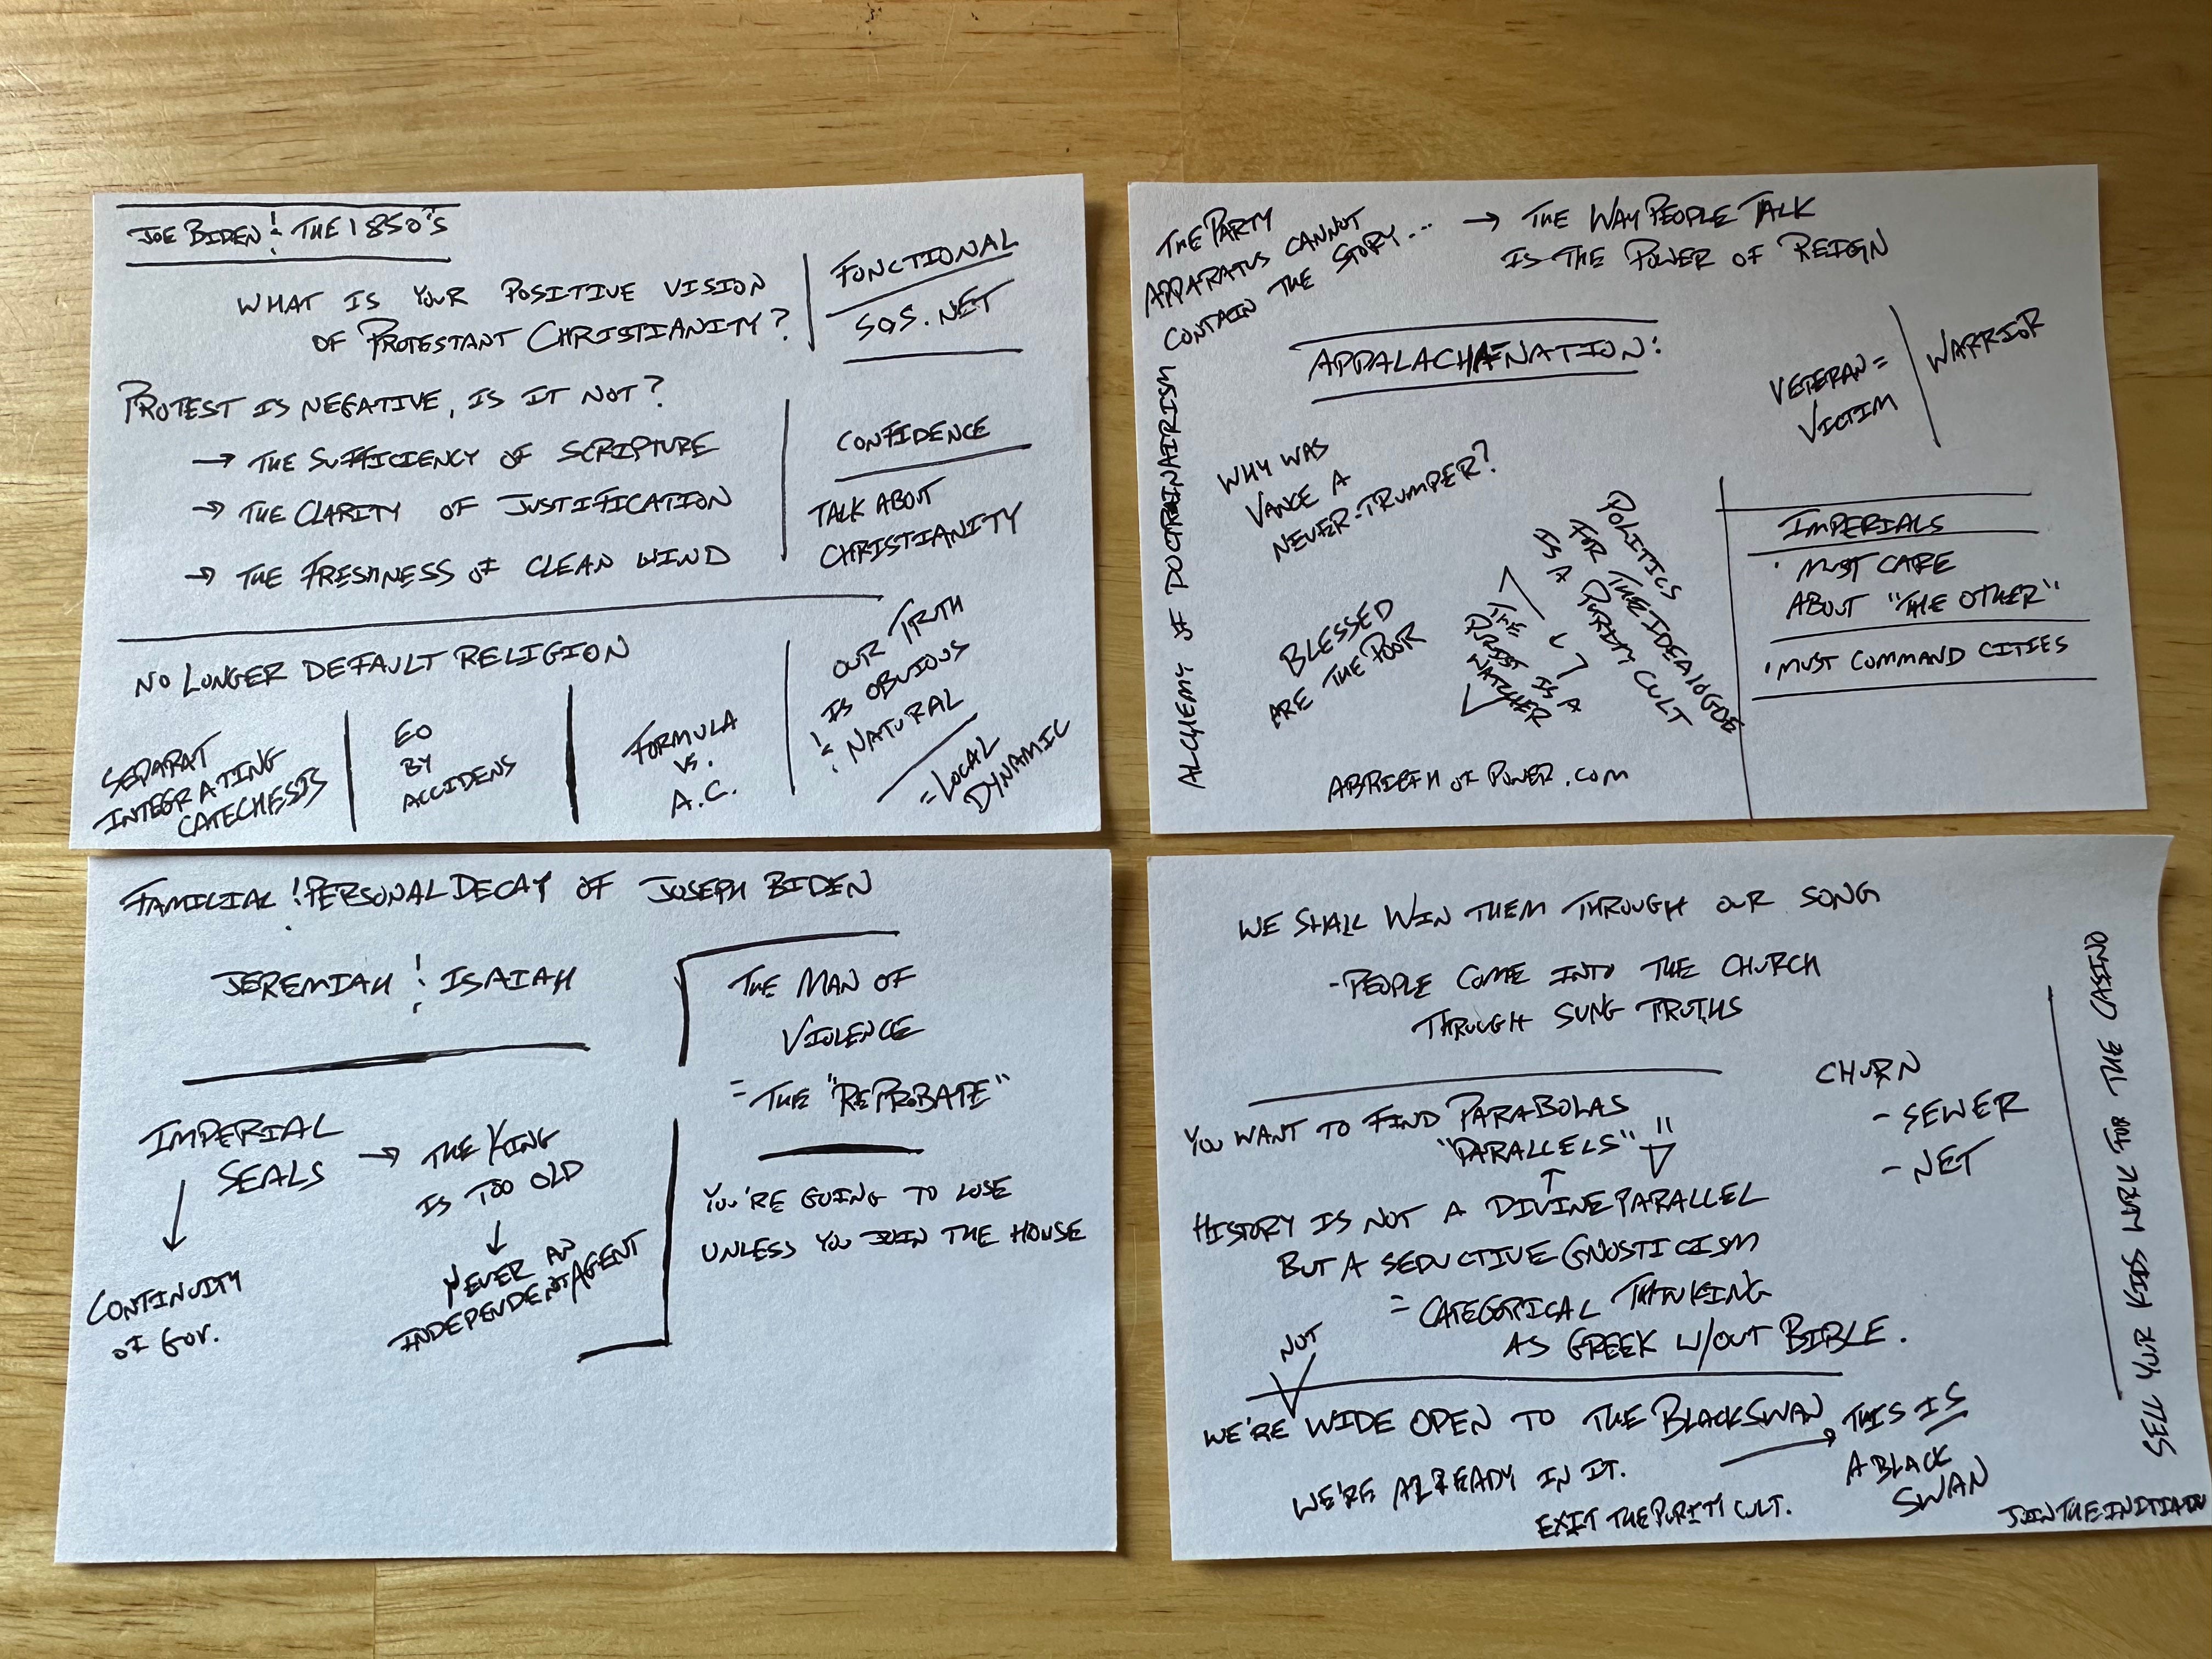 JOE BIDEN & THE 1850"S
WHAT IS YOUR POSITIVE VISION
OF PROTESTANT CHRISTIANITY?
FUNCTIONAL
SQS.NET
PROTEST IS NEGATIVE, IS IT NOT?
→ THE SUFFICIENCY OF SCRIPTURE
→ THE CLARITY OF JUSTIFICATION
→ THE FRESHNESS OF CLEAN WIND
CONFIDENCE
TALK ABOUT
CHRISTIANITY
NO LONGER DEFAULT RELIGION
SEPARAT
INTEGRATING
CATECHESIS
EO
BY
ACCIDENS
FORMULA
VS.
A.C.
OUR TRUTH
IS OBVIOUS
& NATURAL
= LOCAL
DYNAMIC
THE PARTY
APPARATUS CANNOT
CONTAIN THE STORY...
→ THE WAY PEOPLE TALK
IS THE POWER OF REIGN
ALCHEMY OF DOCTRINAIRISM
APPALACHANATION:
VETERAN =
VICTIM
WARRIOR
WHY WAS
VANCE A
NEVER-TRUMPER?
BLESSED
ARE THE POOR
POLITICS
FOR THE IDEALOGUE
IS A PURITY CULT
THE
PURIST IS A
WATCHER
IMPERIALS
· MUST CARE
ABOUT "THE OTHER"
· MUST COMMAND CITIES
ABRIEFH OF POWER.COM
FAMILIAL & PERSONAL DECAY OF JOSEPH BIDEN
JEREMIAH & ISAIAH
IMPERIAL
SEALS
→ THE KING
IS TOO OLD
↓
NEVER AN
INDEPENDENT AGENT
↓
CONTINUITY
OF GOV.
THE MAN OF
VIOLENCE
= THE "REPROBATE"
YOU'RE GOING TO LOSE
UNLESS YOU JOIN THE HOUSE
WE SHALL WIN THEM THROUGH OUR SONG
- PEOPLE COME INTO THE CHURCH
THROUGH SUNG TRUTHS
YOU WANT TO FIND PARABOLAS
"PARALLELS"
HISTORY IS NOT A DIVINE PARALLEL
BUT A SEDUCTIVE GNOSTICISM
= CATEGORICAL THINKING
AS GREEK W/OUT BIBLE.
CHURN
- SEWER
- NET
SELL YOUR KIDS WORK FOR THE CASINO
NOT
WE'RE WIDE OPEN TO THE BLACK SWAN
WE'RE ALREADY IN IT.
→ THIS IS
A BLACK
SWAN
EXIT THE PURITY CULT.